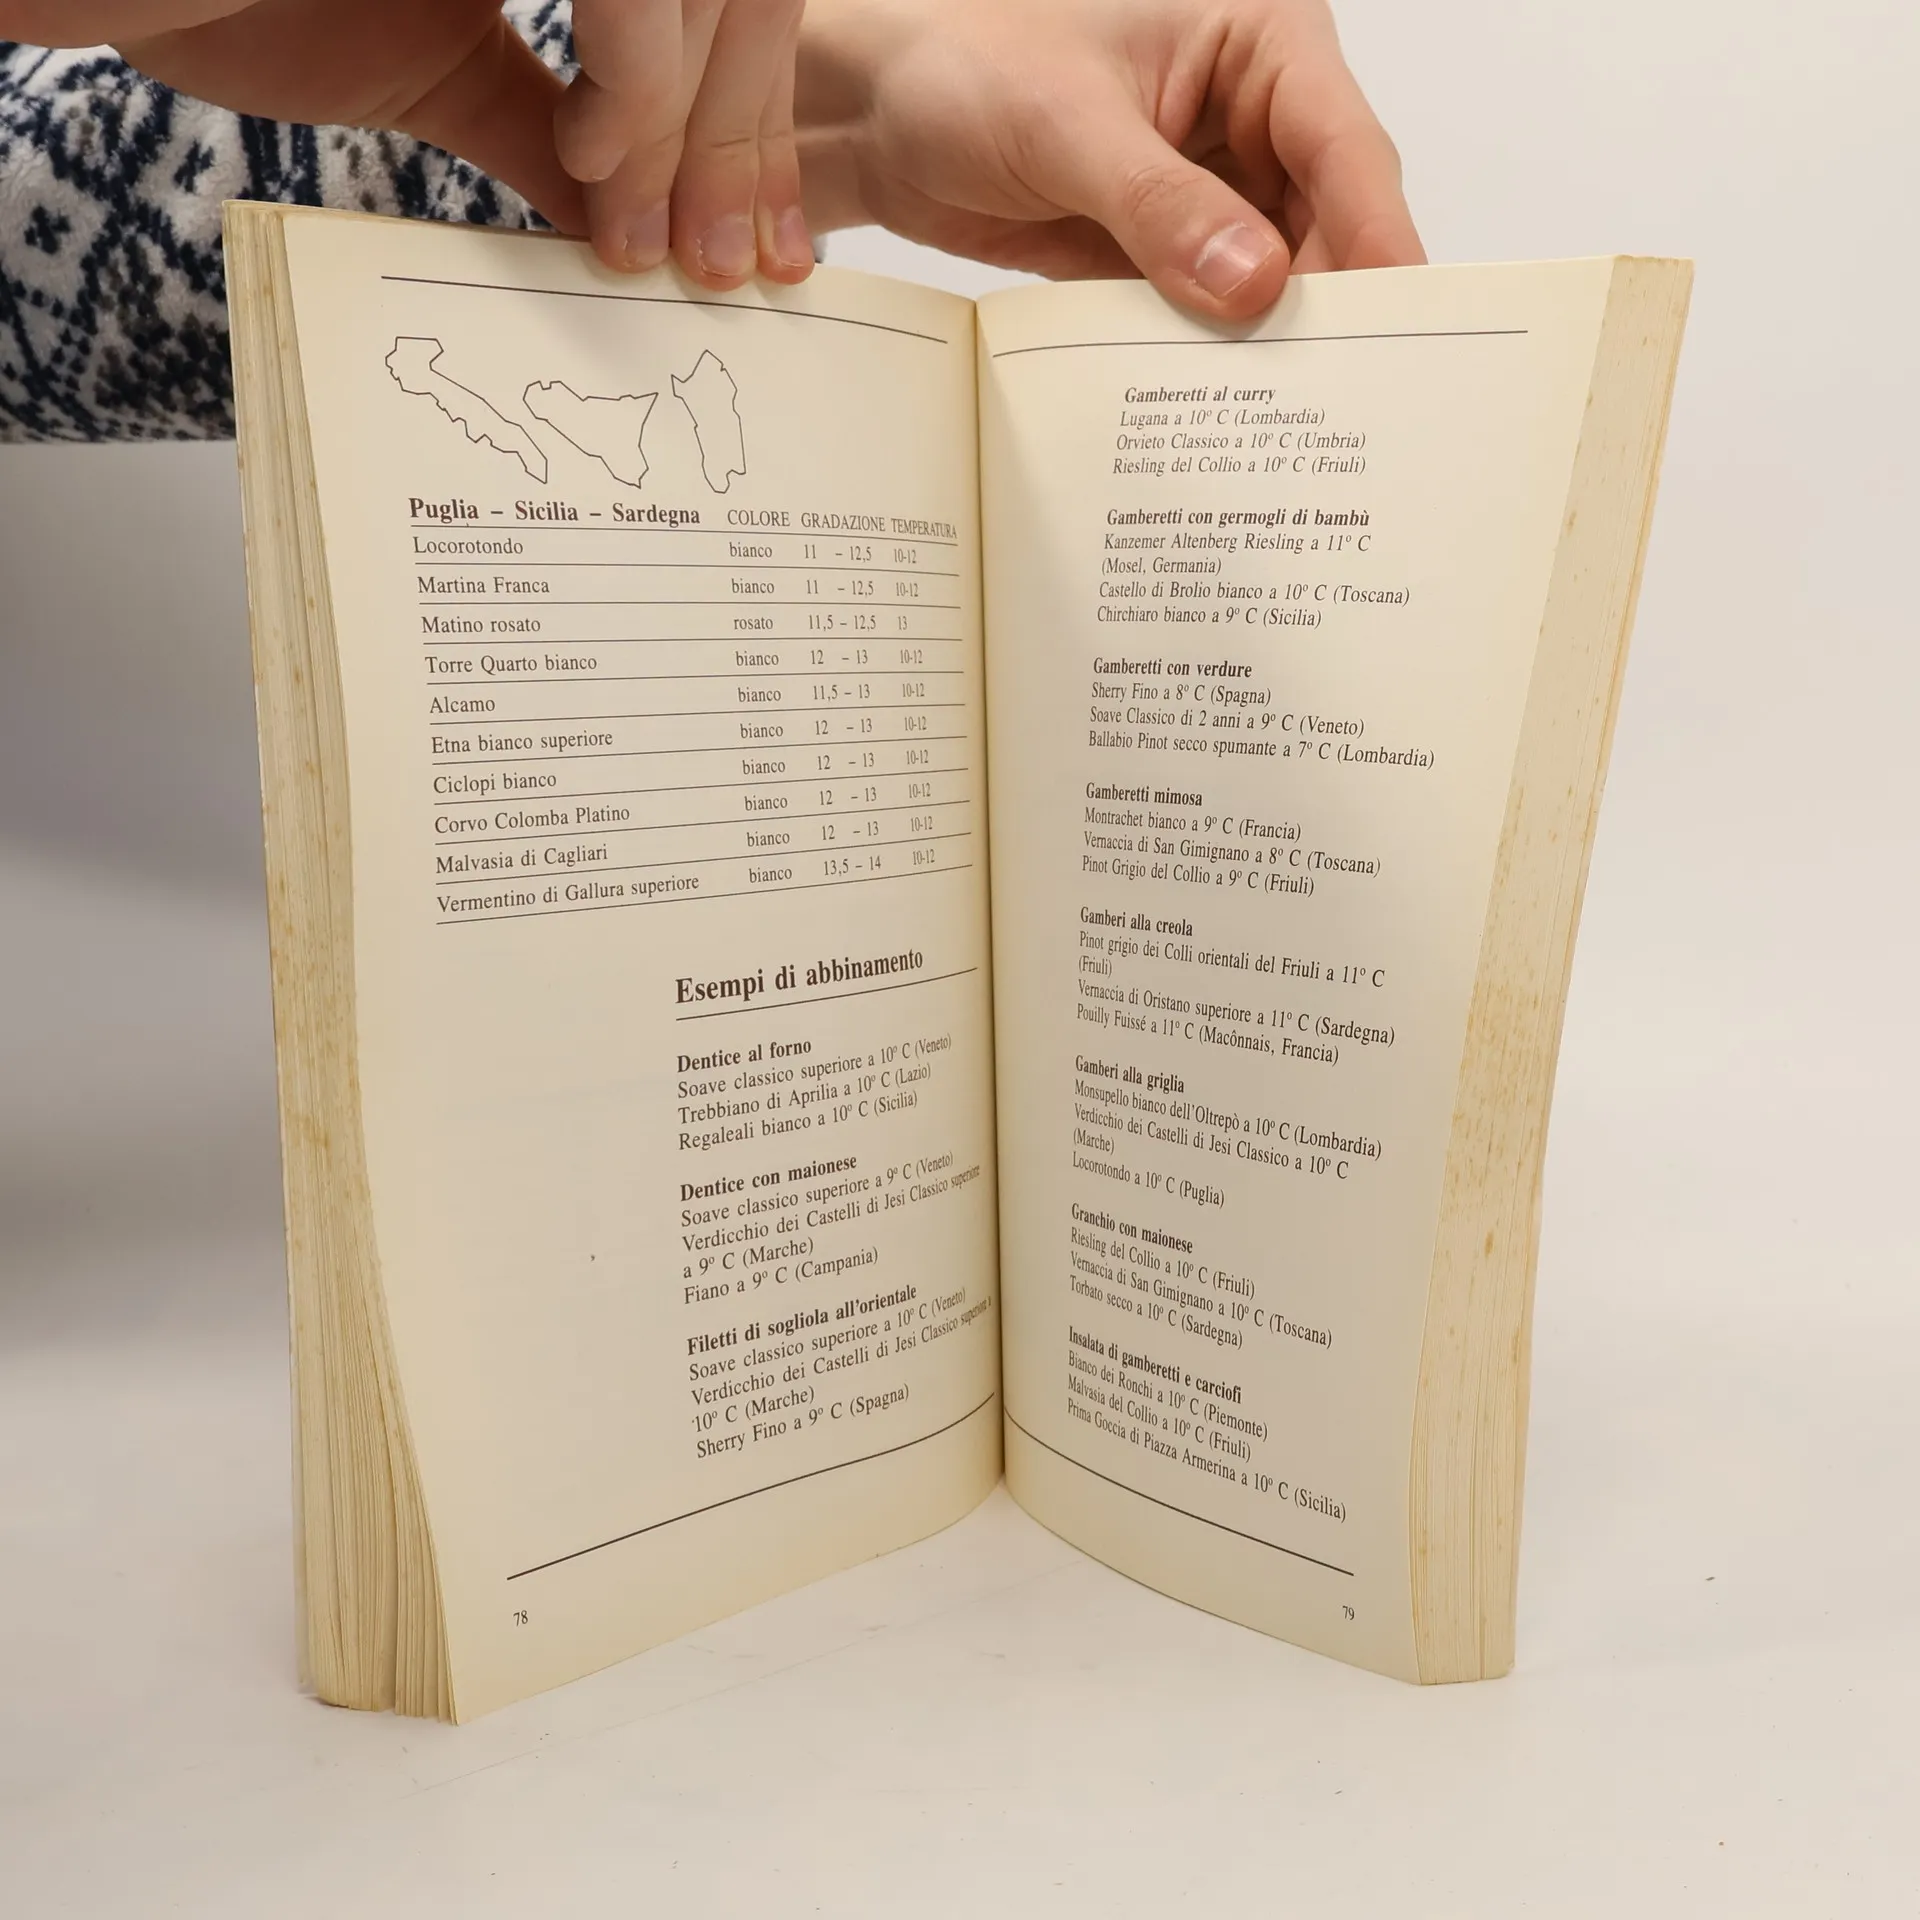 Puglia – Sicilia – Sardegna COLORE GRADAZIONE TEMPERATURA
Locorotondo bianco 11 – 12,5 10-12
Martina Franca bianco 11 – 12,5 10-12
Matino rosato rosato 11,5 – 12,5 13
Torre Quarto bianco bianco 12 – 13 10-12
Alcamo bianco 11,5 – 13 10-12
Etna bianco superiore bianco 12 – 13 10-12
Ciclopi bianco bianco 12 – 13 10-12
Corvo Colomba Platino bianco 12 – 13 10-12
Malvasia di Cagliari bianco 12 – 13 10-12
Vermentino di Gallura superiore bianco 13,5 – 14 10-12
Esempi di abbinamento
Dentice al forno
Soave classico superiore a 10° C (Veneto)
Trebbiano di Aprilia a 10° C (Lazio)
Regaleali bianco a 10° C (Sicilia)
Dentice con maionese
Soave classico superiore a 9° C (Veneto)
Verdicchio dei Castelli di Jesi Classico superiore
a 9° C (Marche)
Fiano a 9° C (Campania)
Filetti di sogliola all'orientale
Soave classico superiore a 10° C (Veneto)
Verdicchio dei Castelli di Jesi Classico superiore a
10° C (Marche)
Sherry Fino a 9° C (Spagna)
78
Gamberetti al curry
Lugana a 10° C (Lombardia)
Orvieto Classico a 10° C (Umbria)
Riesling del Collio a 10° C (Friuli)
Gamberetti con germogli di bambù
Kanzemer Altenberg Riesling a 11° C
(Mosel, Germania)
Castello di Brolio bianco a 10° C (Toscana)
Chirchiaro bianco a 9° C (Sicilia)
Gamberetti con verdure
Sherry Fino a 8° C (Spagna)
Soave Classico di 2 anni a 9° C (Veneto)
Ballabio Pinot secco spumante a 7° C (Lombardia)
Gamberetti mimosa
Montrachet bianco a 9° C (Francia)
Vernaccia di San Gimignano a 8° C (Toscana)
Pinot Grigio del Collio a 9° C (Friuli)
Gamberi alla creola
Pinot grigio dei Colli orientali del Friuli a 11° C
(Friuli)
Vernaccia di Oristano superiore a 11° C (Sardegna)
Pouilly Fuissé a 11° C (Macônnais, Francia)
Gamberi alla griglia
Monsupello bianco dell'Oltrepò a 10° C (Lombardia)
Verdicchio dei Castelli di Jesi Classico a 10° C
(Marche)
Locorotondo a 10° C (Puglia)
Granchio con maionese
Riesling del Collio a 10° C (Friuli)
Vernaccia di San Gimignano a 10° C (Toscana)
Torbato secco a 10° C (Sardegna)
Insalata di gamberetti e carciofi
Bianco dei Ronchi a 10° C (Piemonte)
Malvasia del Collio a 10° C (Friuli)
Prima Goccia di Piazza Armerina a 10° C (Sicilia)
79